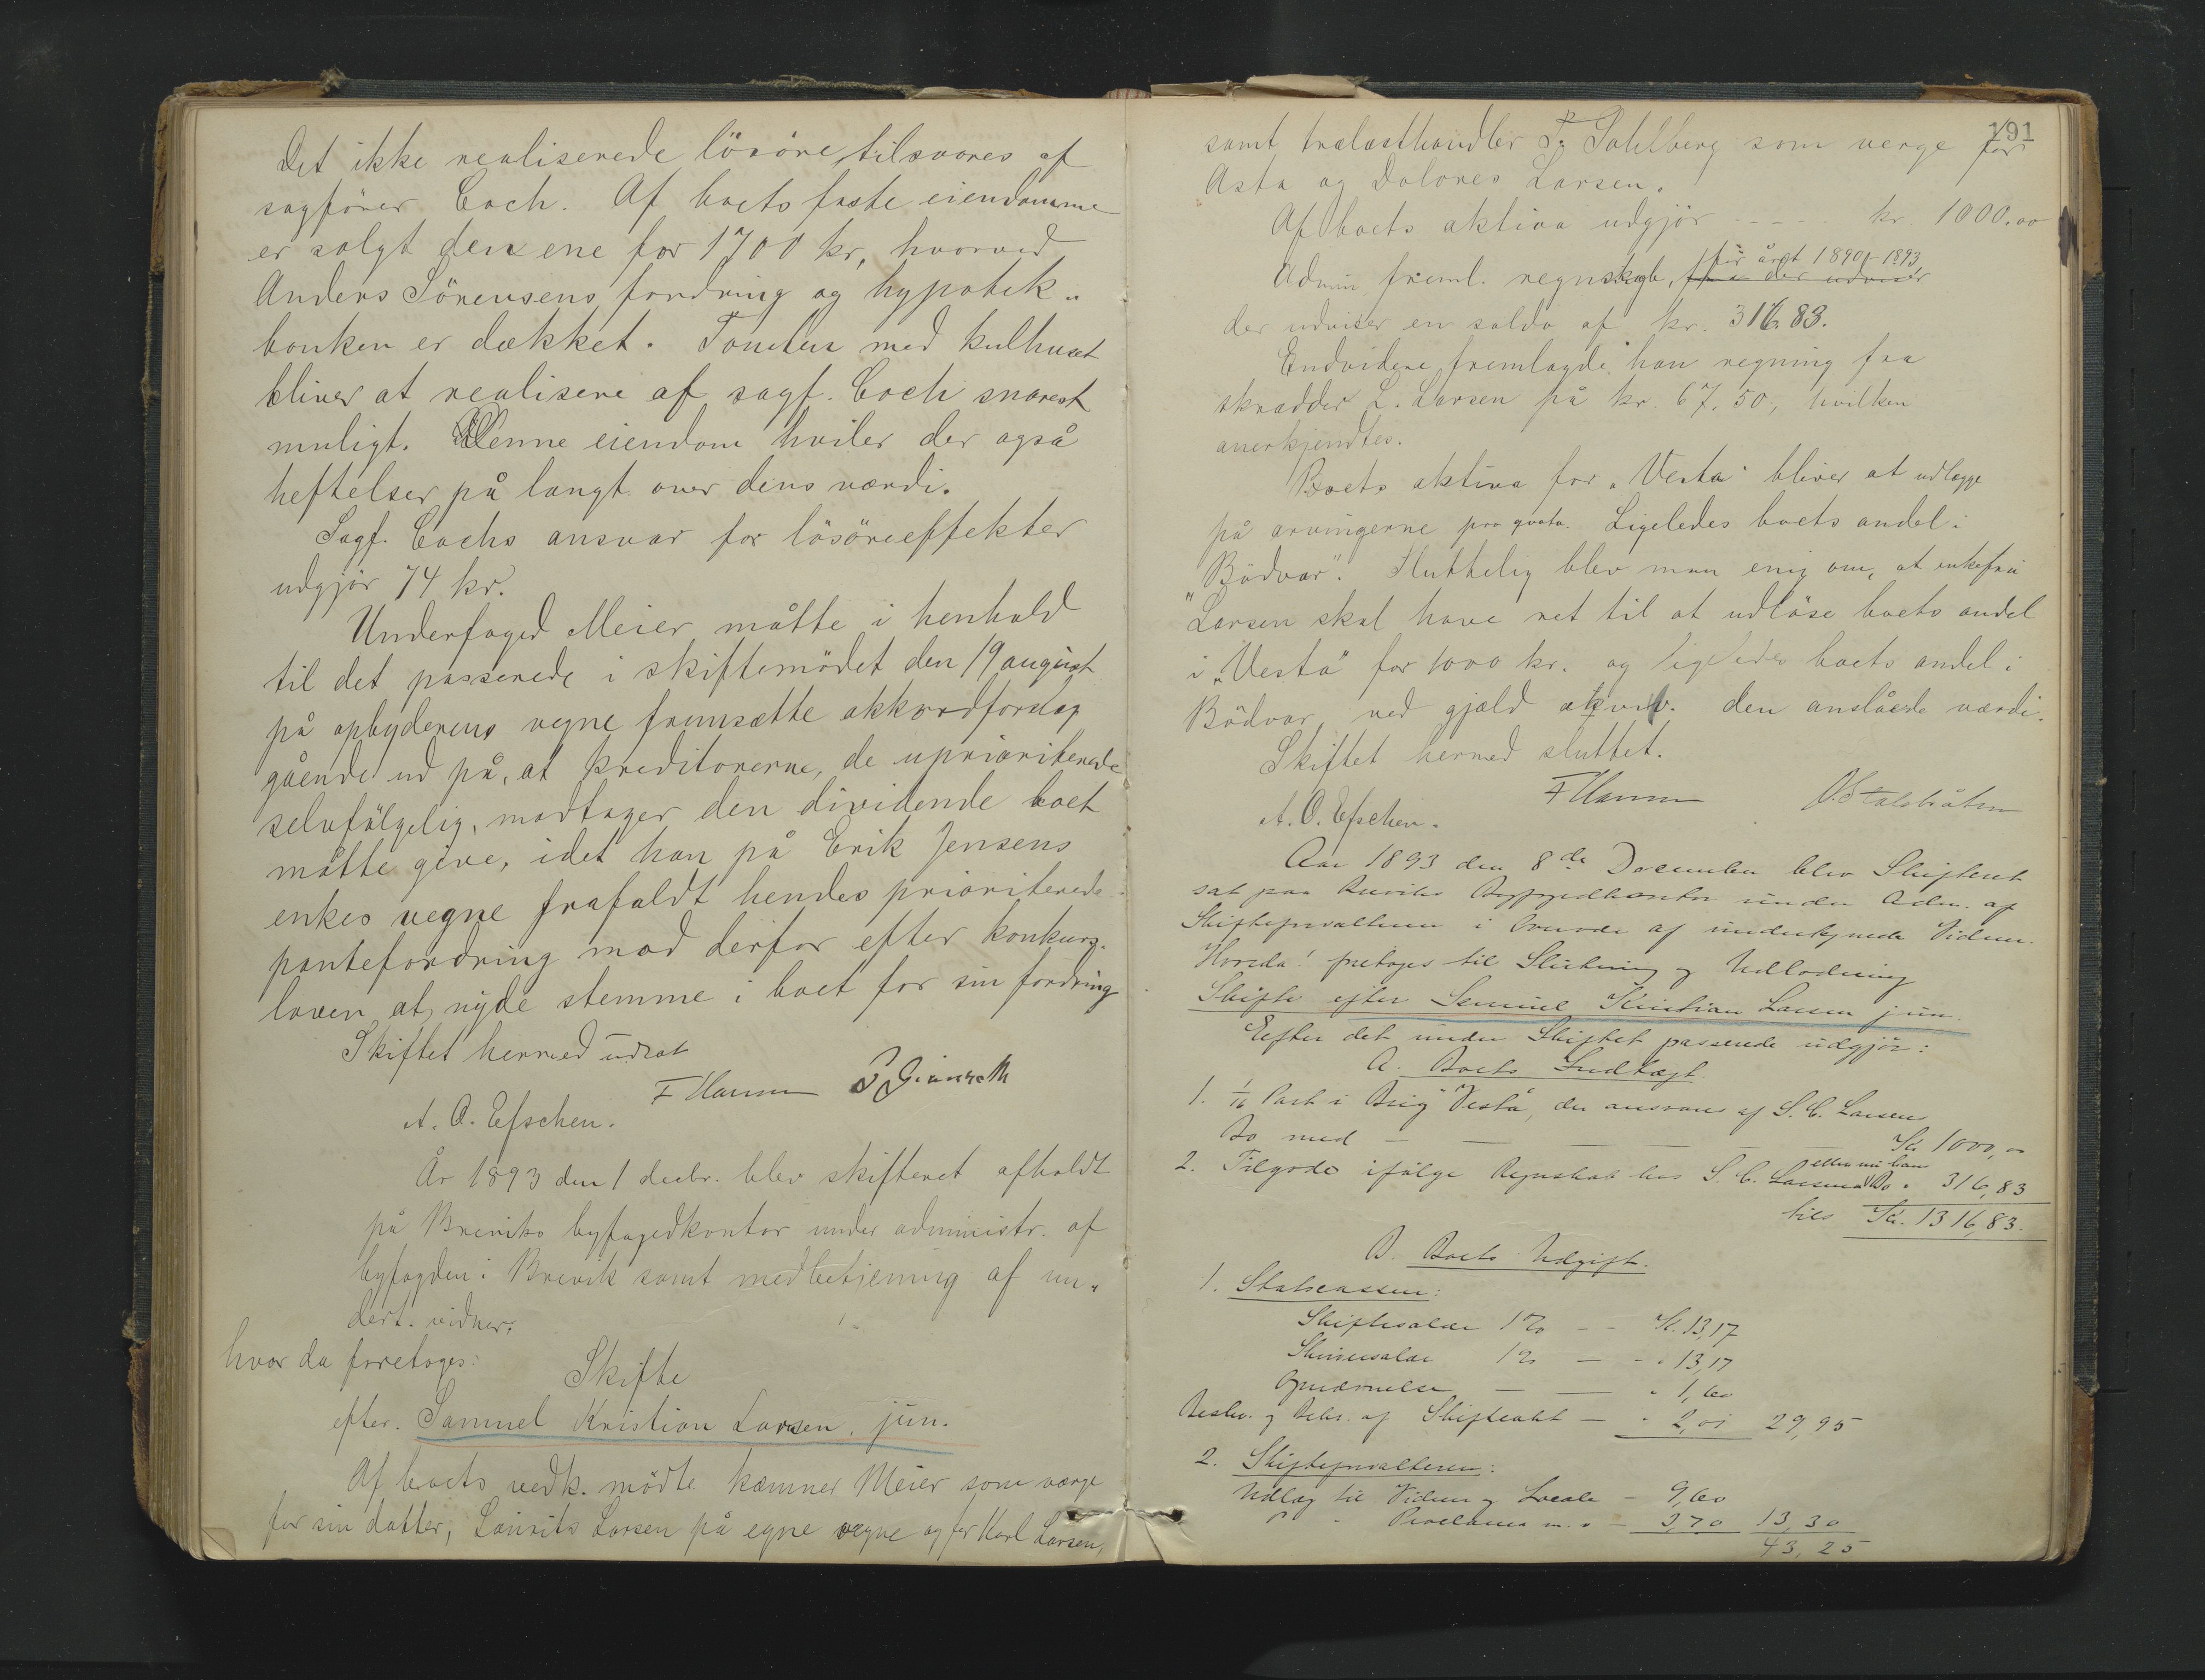 Det ikke realiserede lösöre tilsvares af
sagförer Coch. Af boets faste eiendomme
er solgt den ene for 1700 kr, hvorved
Anders Sörensens fordring og hypotek„
banken er dækket. Tomten med kulhuset
bliver at realisere af sagf. Coch snarest
muligt. Denne eiendom hviler der også
heftelser på langt over dens værdi.
Sagf. Cochs ansvar for lösöreeffekter
udgjör 74 kr.
Underfoged Meier måtte i henhold
til det passerede i skiftemödet den 19 august
på opbyderens vegne fremsætte akkordforslag
gående ud på, at kreditorerne, de uprioriterede
selvfölgelig, modtager den dividende boet
måtte give, idet han på Erik Jensens
enkes vegne frafaldt hendes prioriterede
pantefordring mod derfor efter konkurs-
loven at nyde stemme i boet for sin fordring
Skiftet hermed udsat
F Hansen
A. O. Efschen.
År 1893 den 1 decbr. blev skifteret afholdt
på Breviks byfogedkontor under administr. af
byfogden i Brevik samt medbetjening af un„
dert. vidner,
hvor da foretoges:
Skifte
efter. Samuel Kristian Larsen, jun.
Af boets vedk. mödte kæmner Meier som værge
for sin datter, Laurits Larsen på egne vegne og for Karl Larsen,
191
samt trælasthandler T. Sahlberg som verge for
Asta og Dolores Larsen.
Af boets aktiva udgjör - - - - kr 1000.00
for året 1890-1893
Admin freml. regnskab, der udviser
der udviser en saldo af kr. 316.83.
Endvidere fremlagde han regning fra
skrædder L. Larsen på kr. 67,50, hvilken
anerkjendtes.
Boets aktiva for „Vesta" bliver at udlægge
på arvingerne pro qvota. Ligeledes boets andel i
„Bödvar". Sluttelig blev man enig om, at enkefru
Larsen skal have ret til at udlöse boets andel
i „Vesta" for 1000 kr. og ligeledes boets andel i
Bödvar ved gjæld den anslåede værdi.
Skiftet hermed sluttet.
F Hansen
A. O. Efschen.
Aar 1893 den 8de December blev Skifteret
sat paa Breviks Byfogedkontor under Adm. af
Skifteforvalteren i Overvær af undertegnede Vidner.
Hvorda! foretoges til Slutning og Udlodning
Skifte efter Samuel Kristian Larsen jun.
Efter det under Skiftet passerede udgjör:
A. Boets Indtægt.
1. 1/16 Part i Brig "Vesta", der ansvares af S. C. Larsens
Bo med — — — — Kr 1000,00
2. Tilgode ifölge Regnskab hos S. C. Larsen Bo " 316,83
tils Kr. 1316,83.
B. Boets Udgift.
1. Statscassen:
Skiftesalær 1% - - Kr. 13,17
Skriversalær 1% — - " 13,17
— — " 1,60
Beskr. og Bekr. af Skifteakt — " 2,01 29,95
2. Skifteforvalteren:
Udlæg til Vidner og Locale — 9,60
" " Proclama m. v — 3,70 13,30
43,25